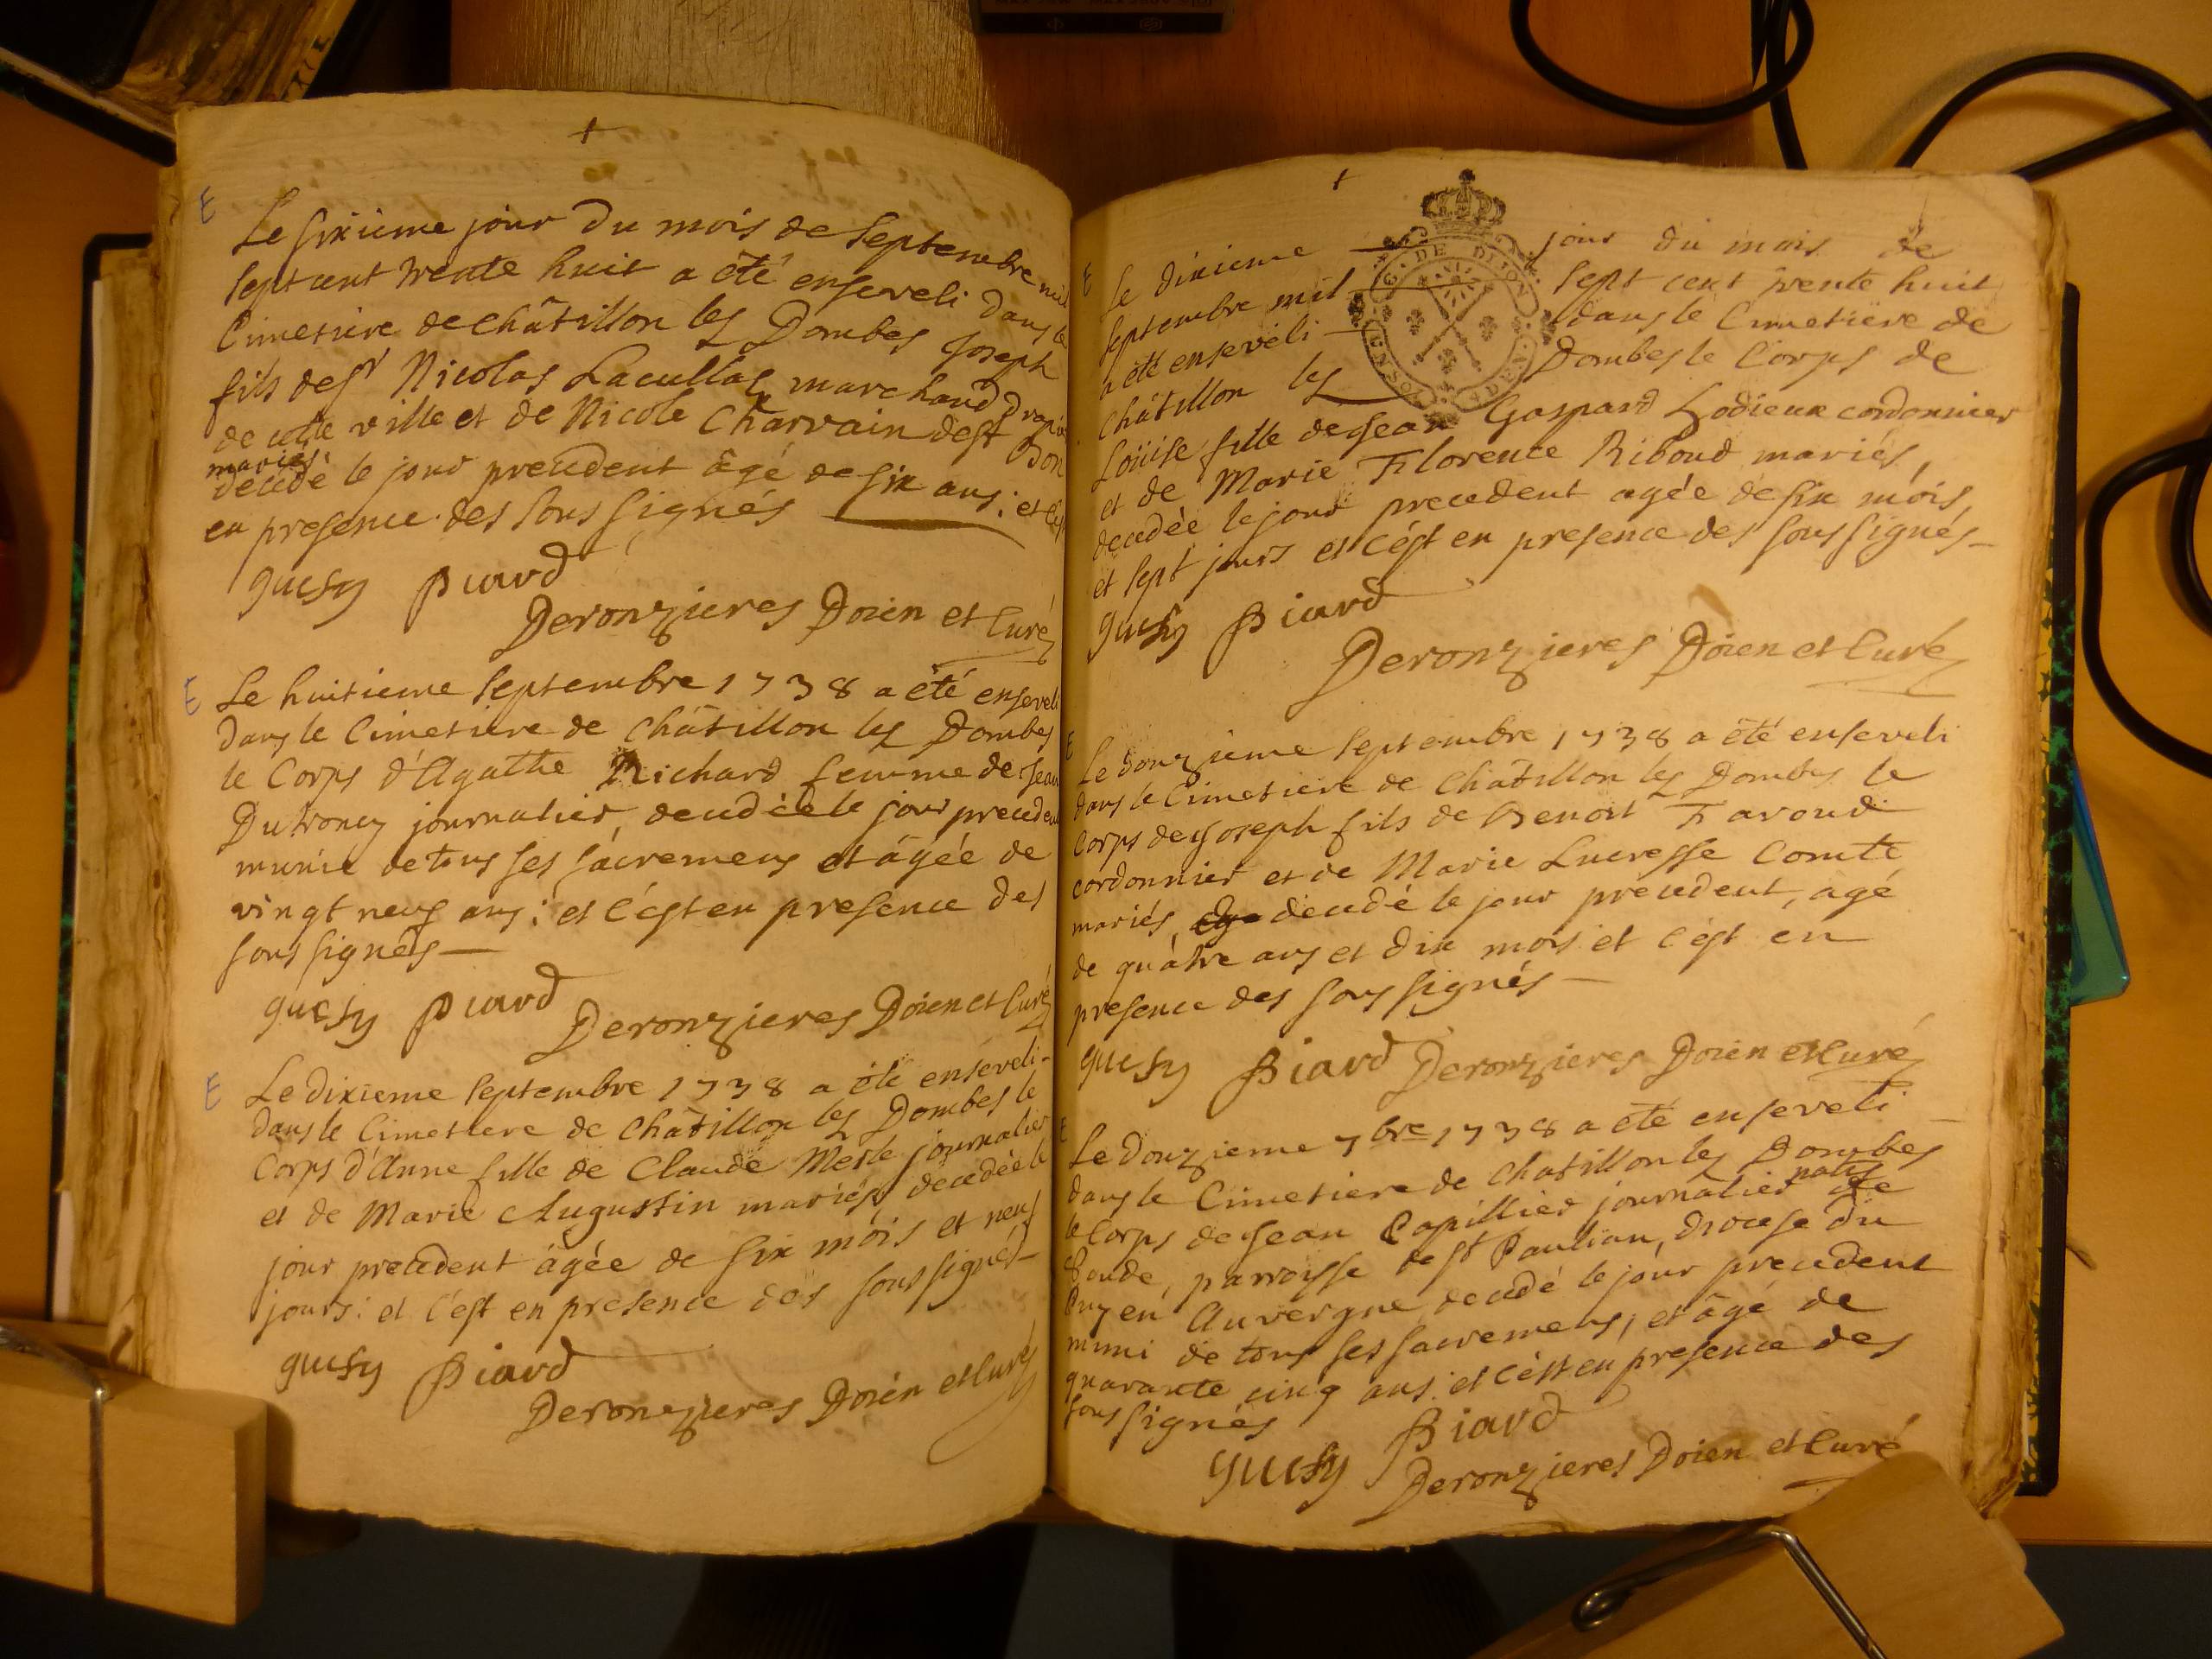 +
E
Le sixieme jour du mois de septembre mil
sept cent trente huit a été enseveli dans le
Cimetiere de châtillon les Dombes Joseph
fils de sr Nicolas Lacullas marchand drapier
de cette ville et de Nicole Charvain
mariés
decedé le jour precedent âgé de six ans; et c'est
en presence des sous signés
guesy Biard
Deronzieres Doien et Curé
E
Le huitieme septembre 1738 a été enseveli
dans le Cimetiere de châtillon les Dombes
le Corps d'Agathe Richard femme de Jean
Dutroncy journalier, decedée le jour precedent
munie de tous ses sacremens et âgée de
vingt neuf ans; et c'est en presence des
sous signés
guesy Biard
Deronzieres Doien et Curé
E
Le dixieme septembre 1738 a été enseveli
dans le Cimetiere de châtillon les Dombes le
Corps d'Anne fille de Claude Merle journalier
et de Marie Augustin mariés, decedée le
jour precedent âgée de six mois et neuf
jours: et c'est en presence des sous signés
guesy Biard
Deronzieres Doien et Curé
+
E
Le dixieme jour du mois de
septembre mil sept cent trente huit
a été enseveli dans le Cimetiere de
châtillon les Dombes le Corps de
Loüise fille de Jean Gaspard Lodieux cordonnier
et de Marie Florence Riboud mariés,
decedée le jour precedent agée de six mois,
et sept jours et c'est en presence des sous signés
guesy Biard
Deronzieres Doien et Curé
G. DE DIJON
E
Le douzieme septembre 1738 a été enseveli
dans le Cimetiere de Châtillon les Dombes le
Corps de Joseph fils de Benoit Faroud
cordonnier et de Marie Lucresse Comte
mariés, decedé le jour precedent, agé
de quatre ans et dix mois et c'est en
presence des sous signés
guesy Biard Deronzieres Doien et Curé
E
Le douzieme 7bre 1738 a été enseveli
dans le Cimetiere de chatillon les Dombes
natif
le Corps de Jean Capillier journalier de
parroisse de st Paulian, diocese du
Puy en Auvergne, decedé le jour precedent
muni de tous ses sacremens, et âgé de
quarante cinq ans: et c'est en presence des
sous signés
guesy Biard
Deronzieres Doien et Curé